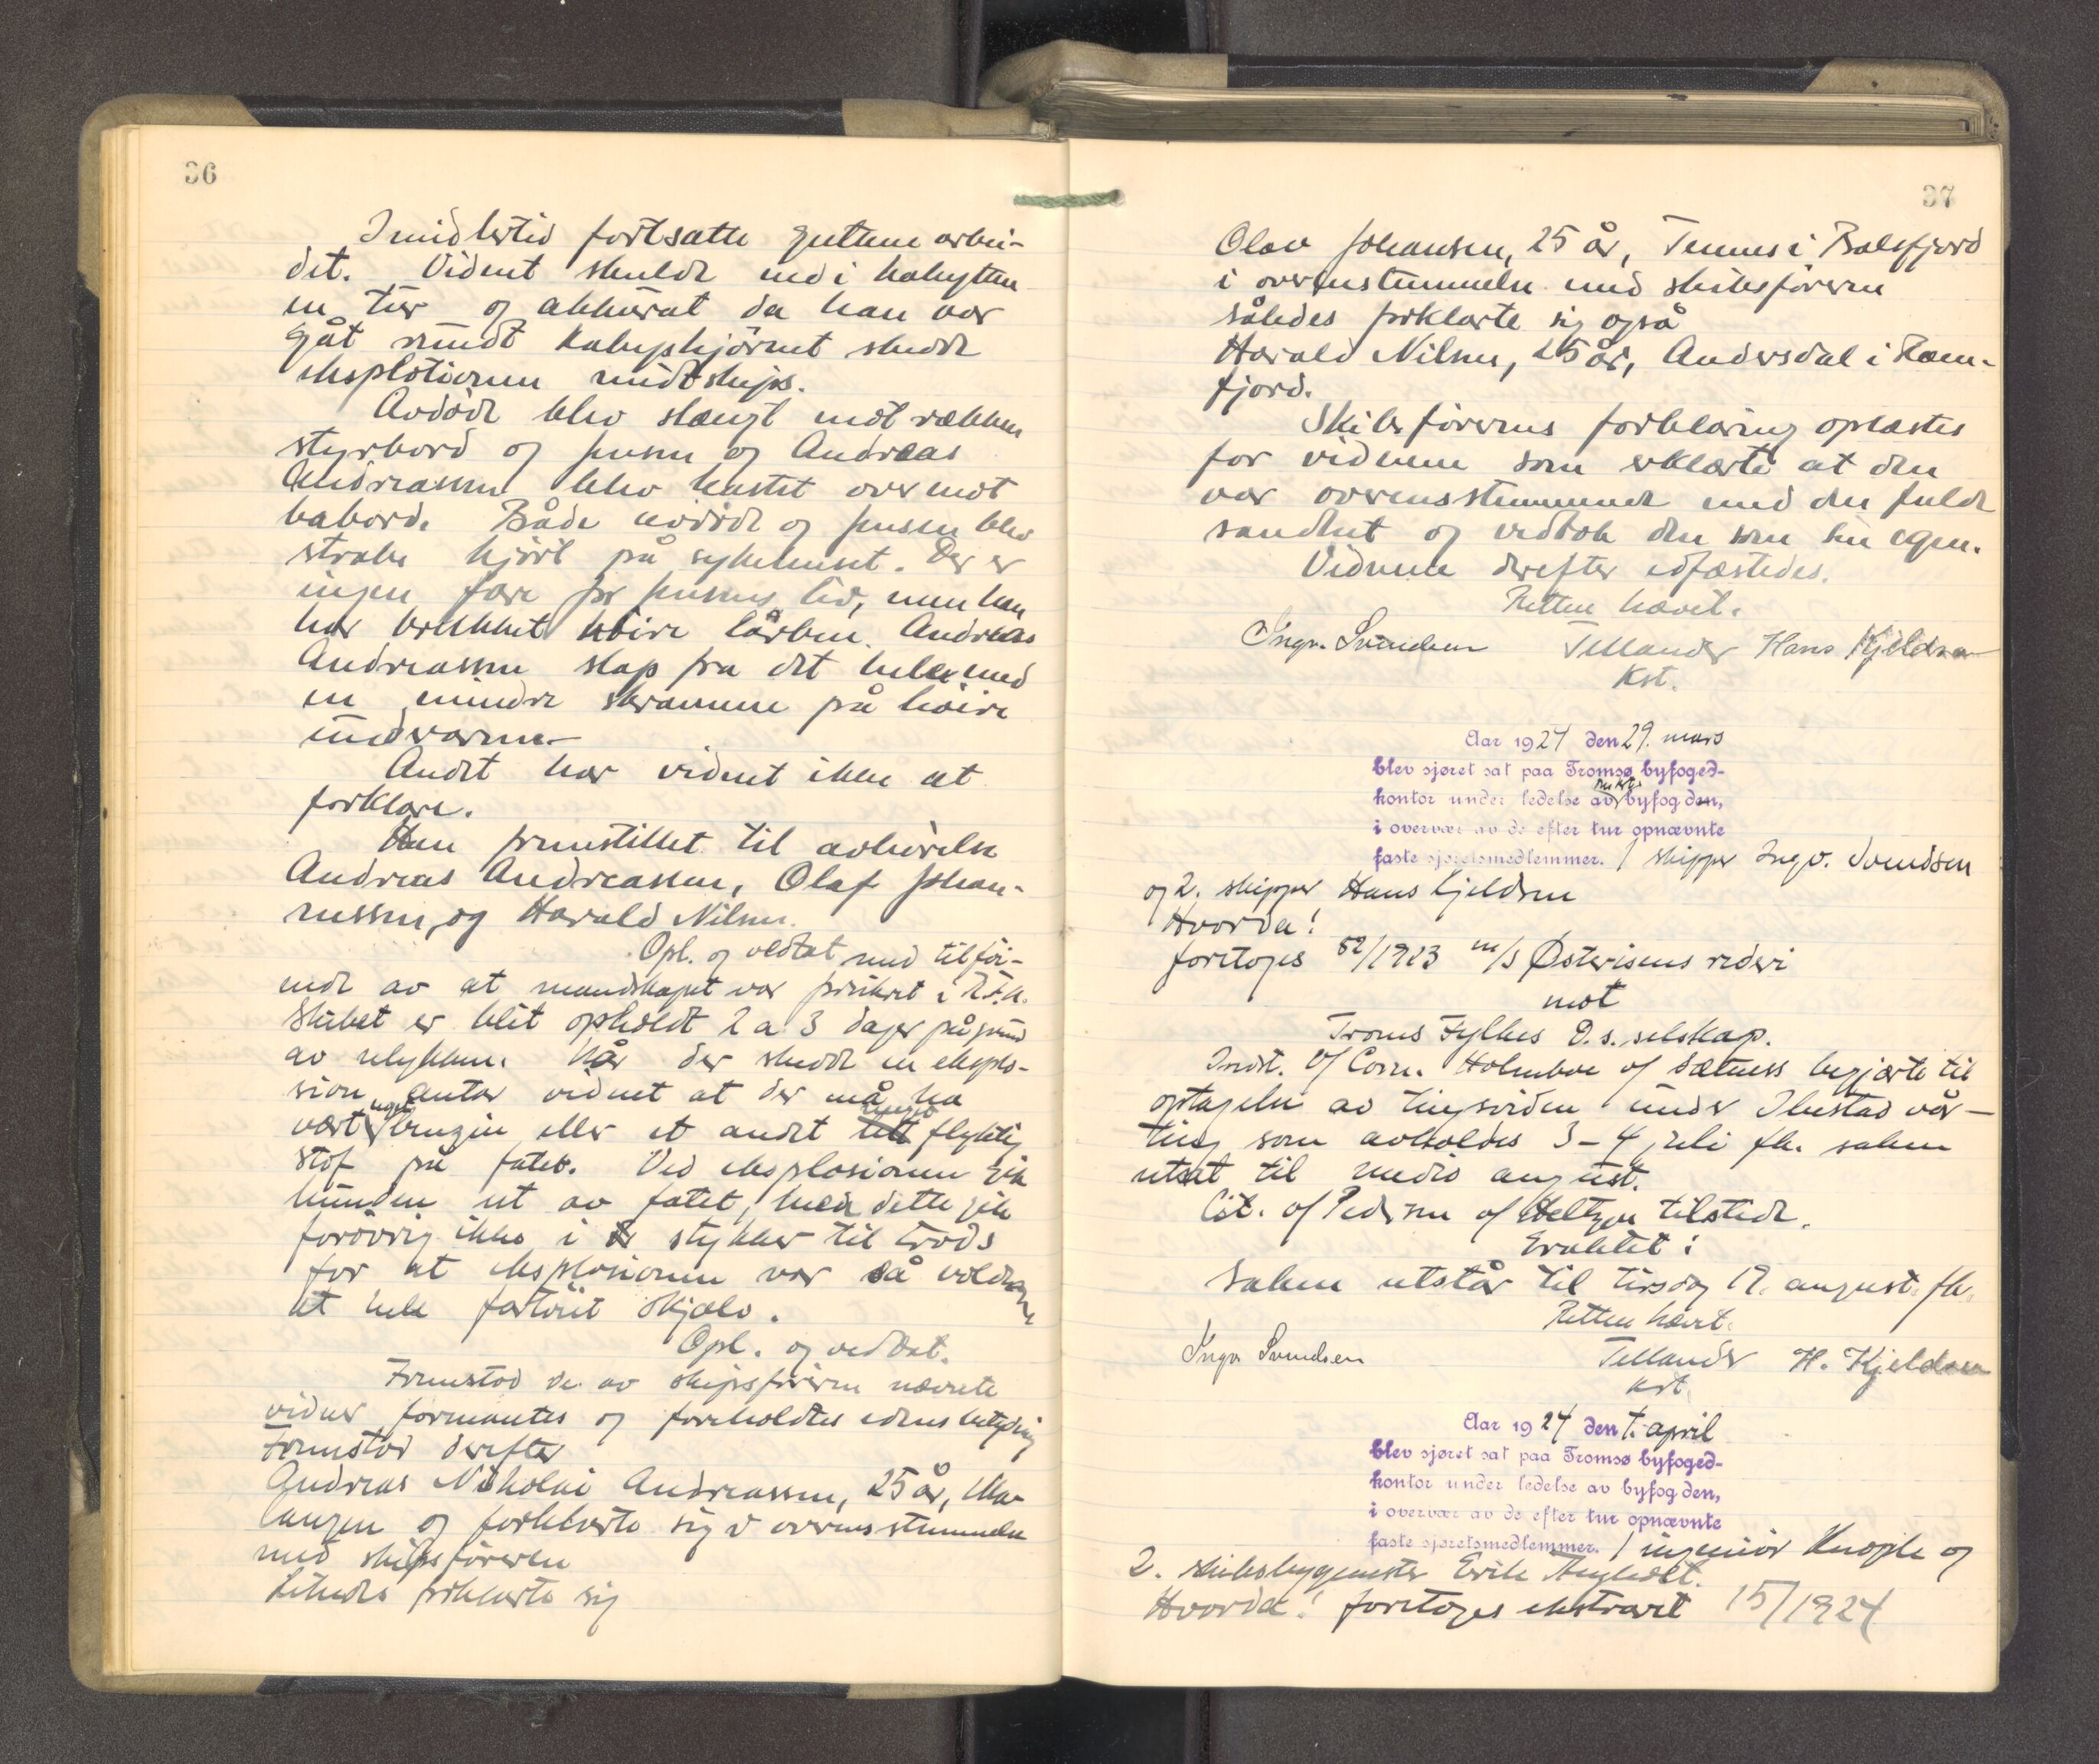 36
Imidlertid fortsatte guttene arbei-
det. Vidnet skulde ned i kahytten
en tur og akkurat da han var
gåt rundt kahyshjørnet skedde
eksplotionen midtskips.
Avdøde blev slængt mot rækken
styrbord og Jensen og Andreas
Andreassen blev kastet over mot
babord. Både avdøde og Jensen blev
straks kjørt på sykehuset. Der er
ingen fare for Jensens liv, men han
har brækket høire lårben. Andreas
Andreassen slap fra det hele med
en mindre skramme på høire
underarm.
Andet har vidnet ikke at
forklare.
Han fremstillet til avhørelse
Andreas Andreassen, Olaf Johan-
nessen, og Harald Nilsen.
Opl. og vedtat med tilføi-
ende av at mandskapet var forsikret i R.F.A.
Skibet er blit opholdt 2 a 3 dager på grund
av ulykken. Når der skedde en eksplo-
sion antar vidnet at der må ha
vært noget bengin eller et andet let meget flyktig
stof på fatet. Ved eksplosionen gik
bunden ut av fatet, men dette gik
forøvrig ikke i stykker til trods
for at eksplosionen var så voldsom
at hele fartøiet skjalv.
Opl. og vedtat.
Fremstod de av skipsføreren nævnte
vidner formantes og foreholdtes edens betydning
Fremstod derefter
Andreas Nikolai Andreassen, 25 år, Ma-
langen og forklarte sig i overensstemmelse
med skipsføreren
Likedes forklarte sig
37
Olav Johansen, 25 år, Tennes i Balsfjord
i overenstemmelse med skibsføreren
således forklarte sig også
Harald Nilsen, 25 år, Andersdal i Ram-
fjord.
Skibsførerens forklaring oplæstes
for vidnene som erklærte at den
var overensstemmende med den fulde
sandhet og vedtok den som sin egen.
Vidnene derefter edfæstedes.
Retten hævet.
Ingv. Svendsen Tellander Hans Kjeldsen
Kst.
Aar 1924 den 29. mars
blev sjøret sat paa Tromsø byfoged-
kontor under ledelse av byfogden,
i overvær av de efter tur opnævnte
faste sjøretsmedlemmer. 1 skipper Ingv. Svendsen
og 2. skipper Hans Kjeldsen
Hvorda!
foretoges 52/1923 m/s Østerisens rederi
mot
Troms Fylkes D.s. selskap.
Indst. v/ Corn. Holmboe v/ Sætness begjærte til
optagelse av tingsviden under Ibestad vår-
ting som avholdes 3-4 juli fk. saken
utsat til medio august.
Cit. v/ Pedersen v/ Heltzen tilstede.
Eraktet:
Saken utstår til tirsdag 19. august. fk.
Retten hævet.
Ingv Svendsen Tellander H. Kjeldsen
kst.
Aar 1924 den 1. april
blev sjøret sat paa Tromsø byfoged-
kontor under ledelse av byfogden,
i overvær av de efter tur opnævnte
faste sjøretsmedlemmer. 1 ingeniør Knoph og
2. skibsbygmester Erik
Hvorda! foretoges ekstraret 15/1924